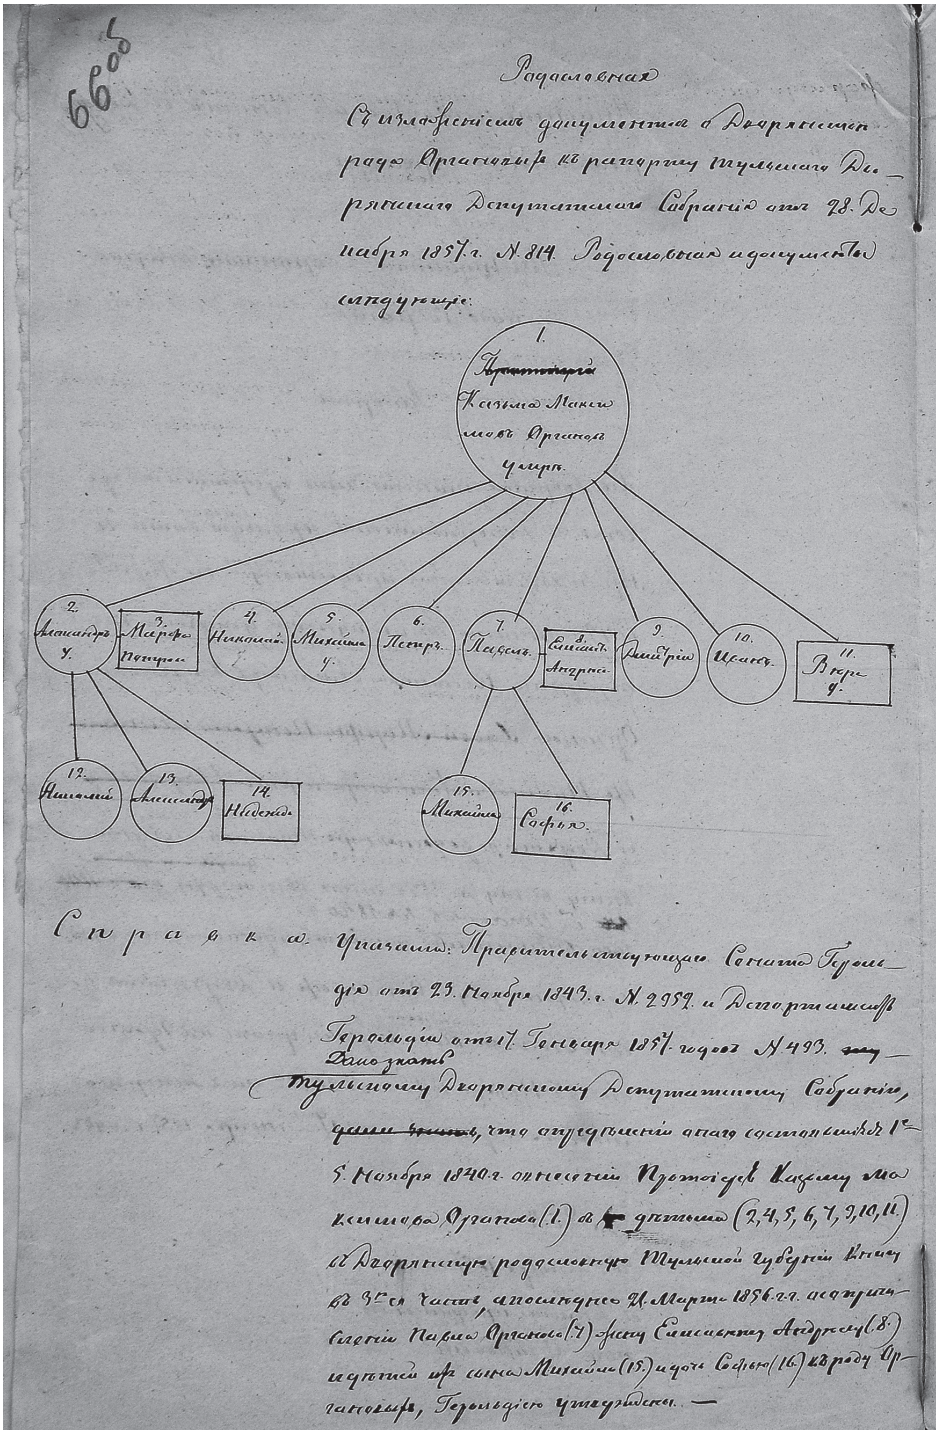 66 об
Родословная
Съ изложеніемъ документовъ о Дворянствѣ
рода Органовыхъ къ рапорту Тульскаго Дво-
рянскаго Депутатскаго Собранія отъ 28. Де
кабря 1857. г. N. 814. Родословная и документы
слѣдующіе:
1.
Казьма Макси
мовъ Органовъ
умеръ.
2.
Александръ
у.
3.
Марфа
Петров
4.
Николай.
5.
Михайла
у.
6.
Петръ.
7.
Павелъ.
8.
Елисавъ
Андреев
9.
Дмитрій
10.
Иванъ.
11.
Вѣра
у.
12.
Николай
13.
Александръ
14.
Надежда
15.
Михайла
16.
Софья.
Справка. Указами: Правительствующаго Сената Героль-
діи отъ 23. Ноября 1843. г. N. 2952. и Департамента
Герольдіи отъ 17. Генваря 1857. годовъ N 493.
Дано знать
Тульскому Дворянскому Депутатскому Собранію,
что опредѣленіи онаго состоявшіеся 1е
5. Ноября 1840. г. о внесеніи Протоіерея Казьму Ма
ксимова Органова (1.) съ дѣтьми (2, 4, 5, 6, 7, 9, 10, 11.)
въ Дворянскую родословную Тульской Губерніи Книгу
въ 3ю ея часть, а послѣднее 21. Марта 1856. г. о сопричи-
сленіи Павла Органова (7.) жену Елисавету Андрееву (8.)
и дѣтей ихъ сына Михайла (15.) и дочь Софью (16.) къ роду Ор-
гановыхъ, Герольдіею утверждены. —